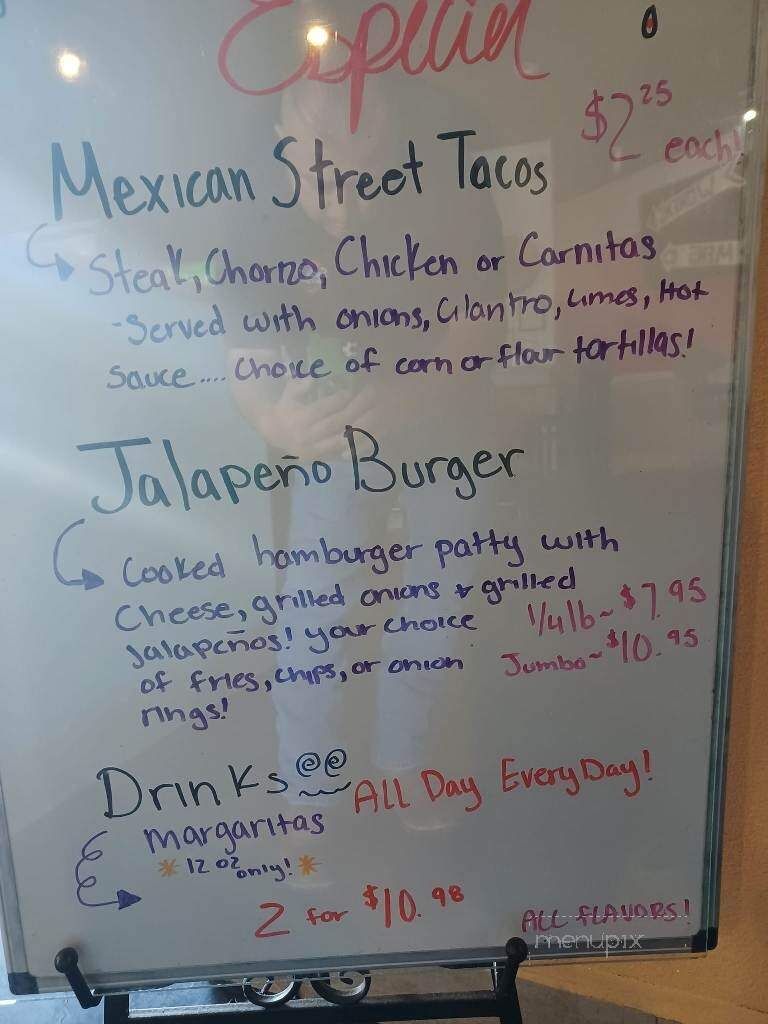 Especial
$2.25 each!
Mexican Street Tacos
Steak, Chorizo, Chicken or Carnitas
-Served with onions, Cilantro, limes, Hot
Sauce.... Choice of corn or flour tortillas!
Jalapeño Burger
Cooked hamburger patty with
Cheese, grilled onions & grilled
Jalapeños! your choice
of fries, chips, or onion
rings!
1/4 lb~ $7.95
Jumbo~ $10.95
Drinks
All Day EveryDay!
margaritas
12 oz only!
2 for $10.98
ALL FLAVORS!
menupix